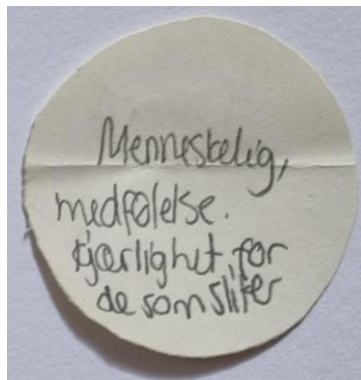 Menneskelig,
medfølelse.
kjærlighet for
de som sliter